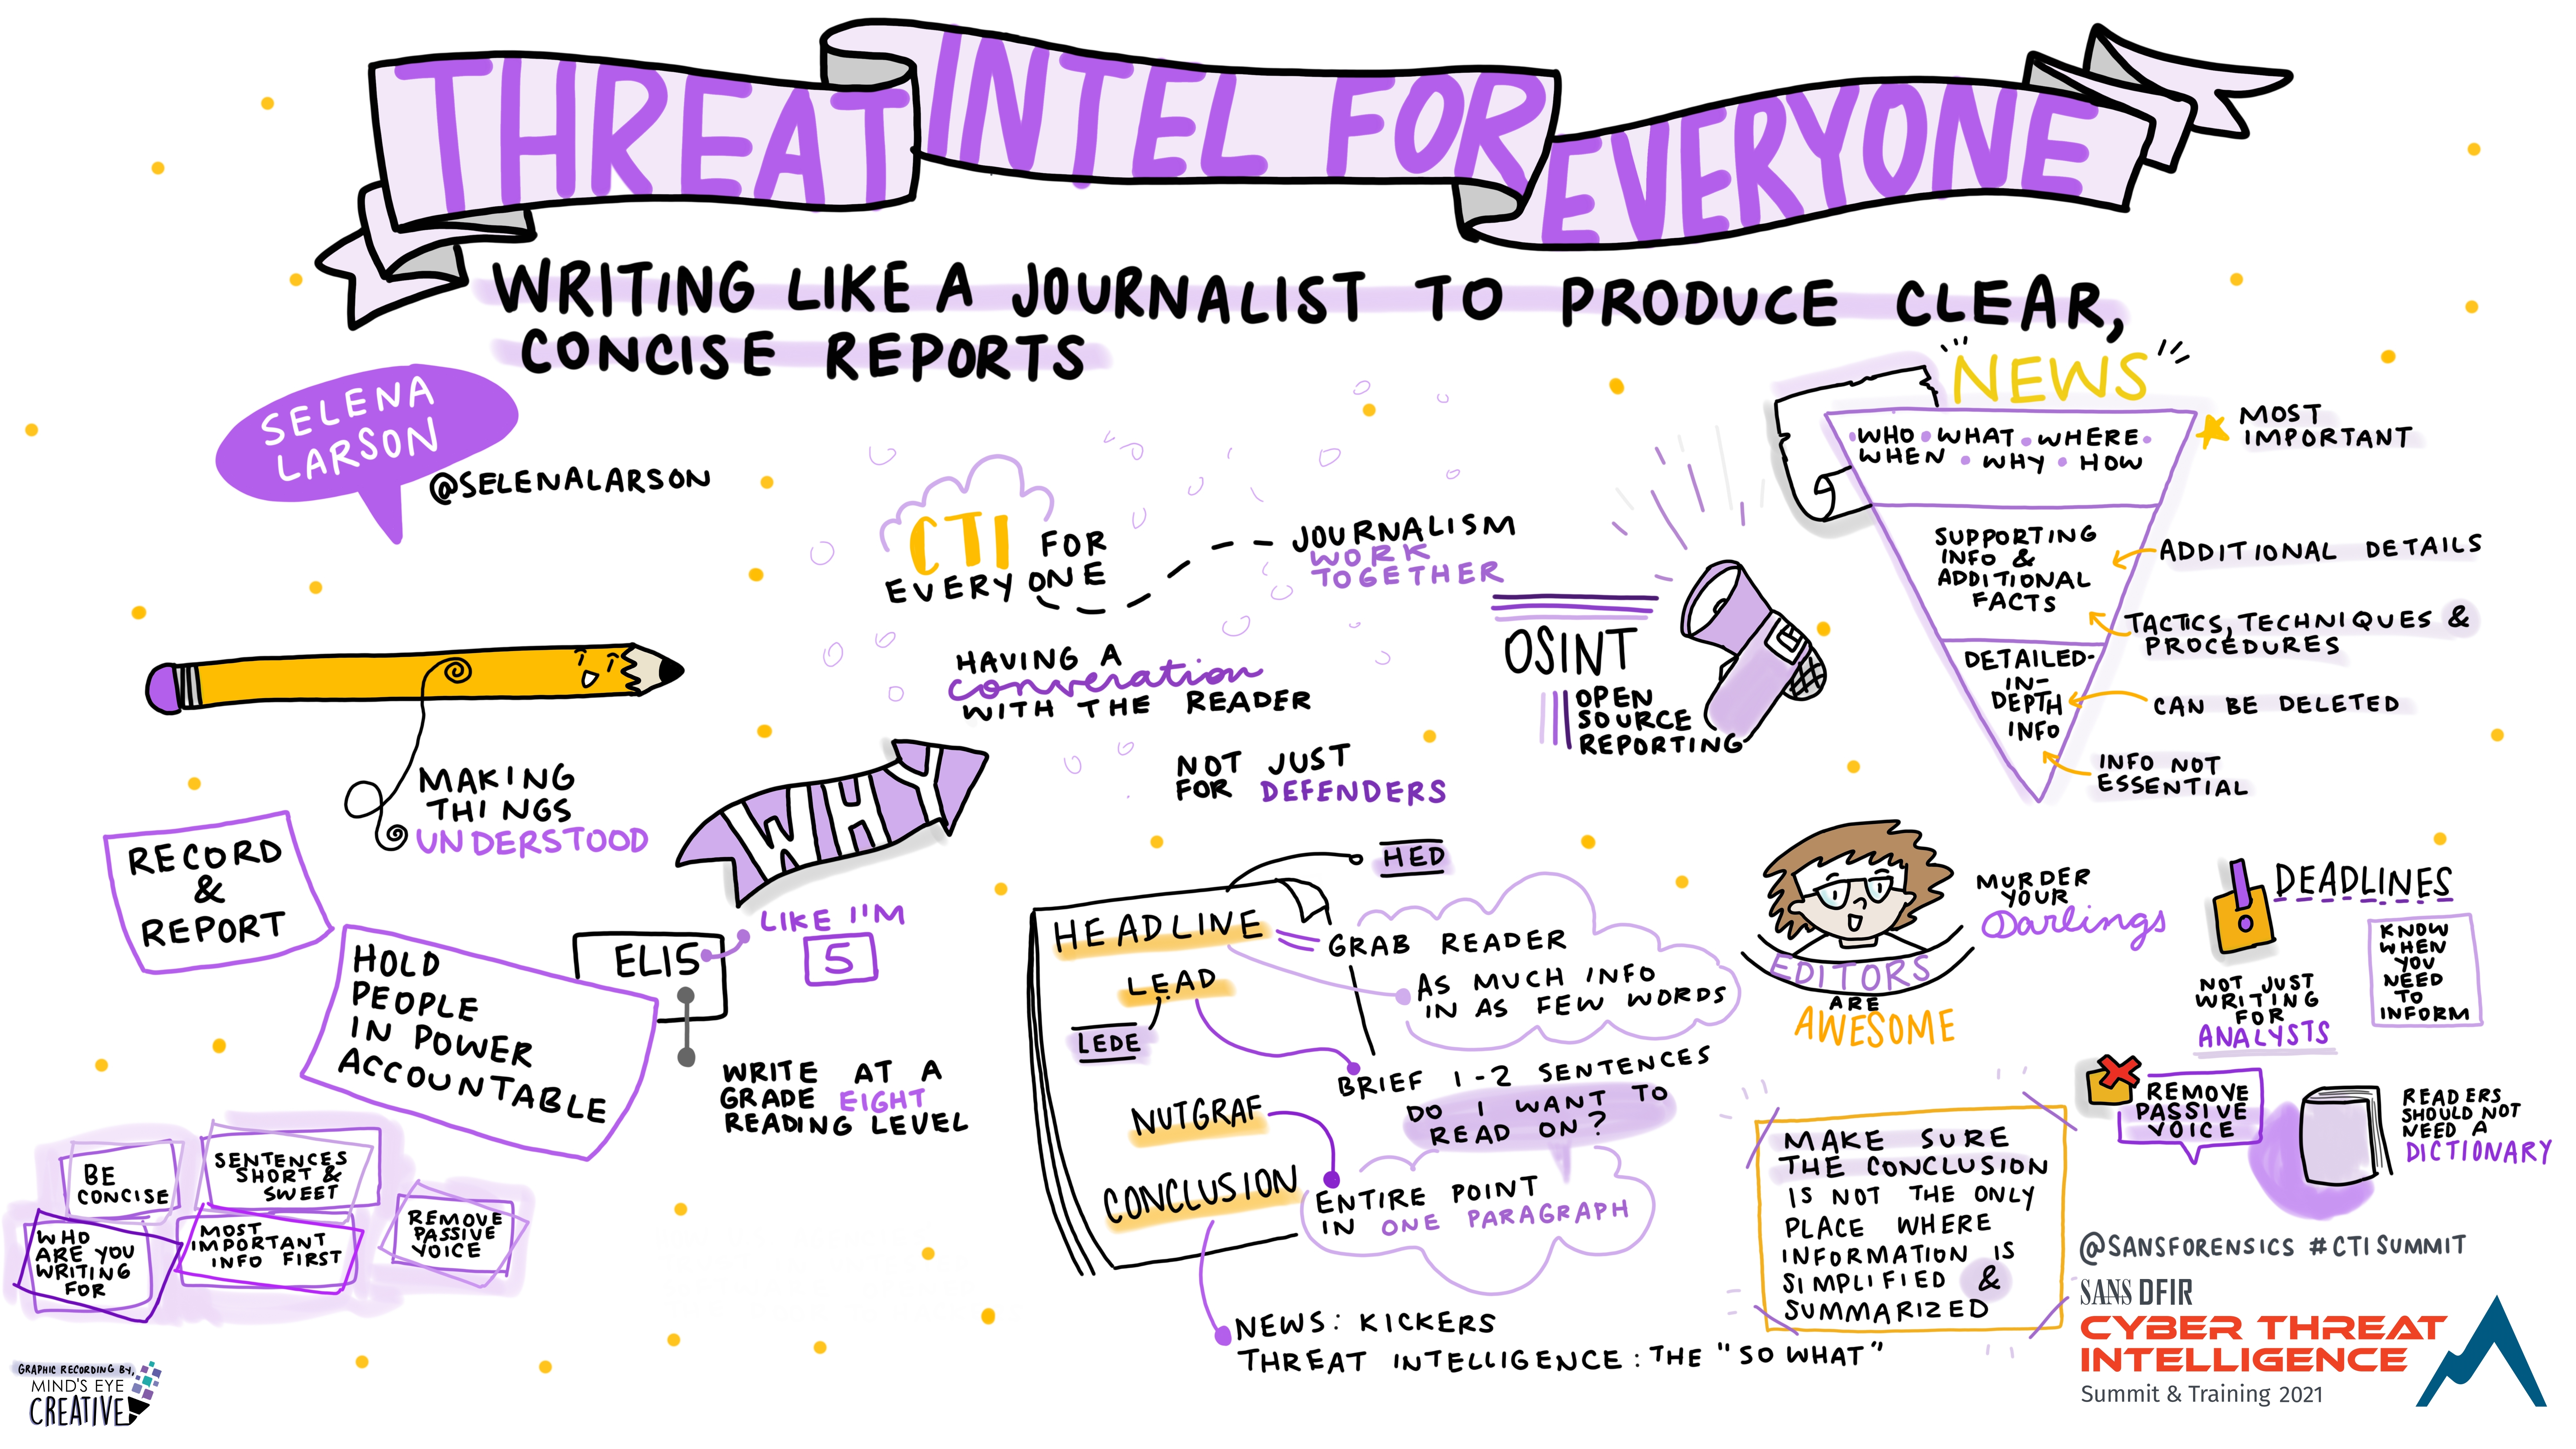 THREAT INTEL FOR EVERYONE
WRITING LIKE A JOURNALIST TO PRODUCE CLEAR,
CONCISE REPORTS
SELENA
LARSON
@SELENALARSON
MAKING
THINGS
UNDERSTOOD
RECORD
&
REPORT
HOLD
PEOPLE
IN POWER
ACCOUNTABLE
BE
CONCISE
SENTENCES
SHORT &
SWEET
WHO
ARE YOU
WRITING
FOR
MOST
IMPORTANT
INFO FIRST
REMOVE
PASSIVE
VOICE
WHY
ELI5
LIKE I'M
5
WRITE AT A
GRADE EIGHT
READING LEVEL
CTI FOR
EVERYONE
JOURNALISM
WORK
TOGETHER
HAVING A
converation
WITH THE READER
NOT JUST
FOR DEFENDERS
OSINT
OPEN
SOURCE
REPORTING
NEWS
WHO • WHAT • WHERE •
WHEN • WHY • HOW
MOST
IMPORTANT
SUPPORTING
INFO &
ADDITIONAL
FACTS
ADDITIONAL DETAILS
TACTICS, TECHNIQUES &
PROCEDURES
DETAILED-
IN-
DEPTH
INFO
CAN BE DELETED
INFO NOT
ESSENTIAL
HED
HEADLINE
GRAB READER
AS MUCH INFO
IN AS FEW WORDS
LEAD
LEDE
BRIEF 1-2 SENTENCES
DO I WANT TO
READ ON?
NUTGRAF
ENTIRE POINT
IN ONE PARAGRAPH
CONCLUSION
NEWS: KICKERS
THREAT INTELLIGENCE: THE "SO WHAT"
EDITORS
ARE
AWESOME
MURDER
YOUR
Darlings
DEADLINES
NOT JUST
WRITING
FOR
ANALYSTS
KNOW
WHEN
YOU
NEED
TO
INFORM
REMOVE
PASSIVE
VOICE
READERS
SHOULD NOT
NEED A
DICTIONARY
MAKE SURE
THE CONCLUSION
IS NOT THE ONLY
PLACE WHERE
INFORMATION IS
SIMPLIFIED &
SUMMARIZED
@SANSFORENSICS #CTISUMMIT
SANS DFIR
CYBER THREAT
INTELLIGENCE
Summit & Training 2021
GRAPHIC RECORDING BY,
MIND'S EYE
CREATIVE